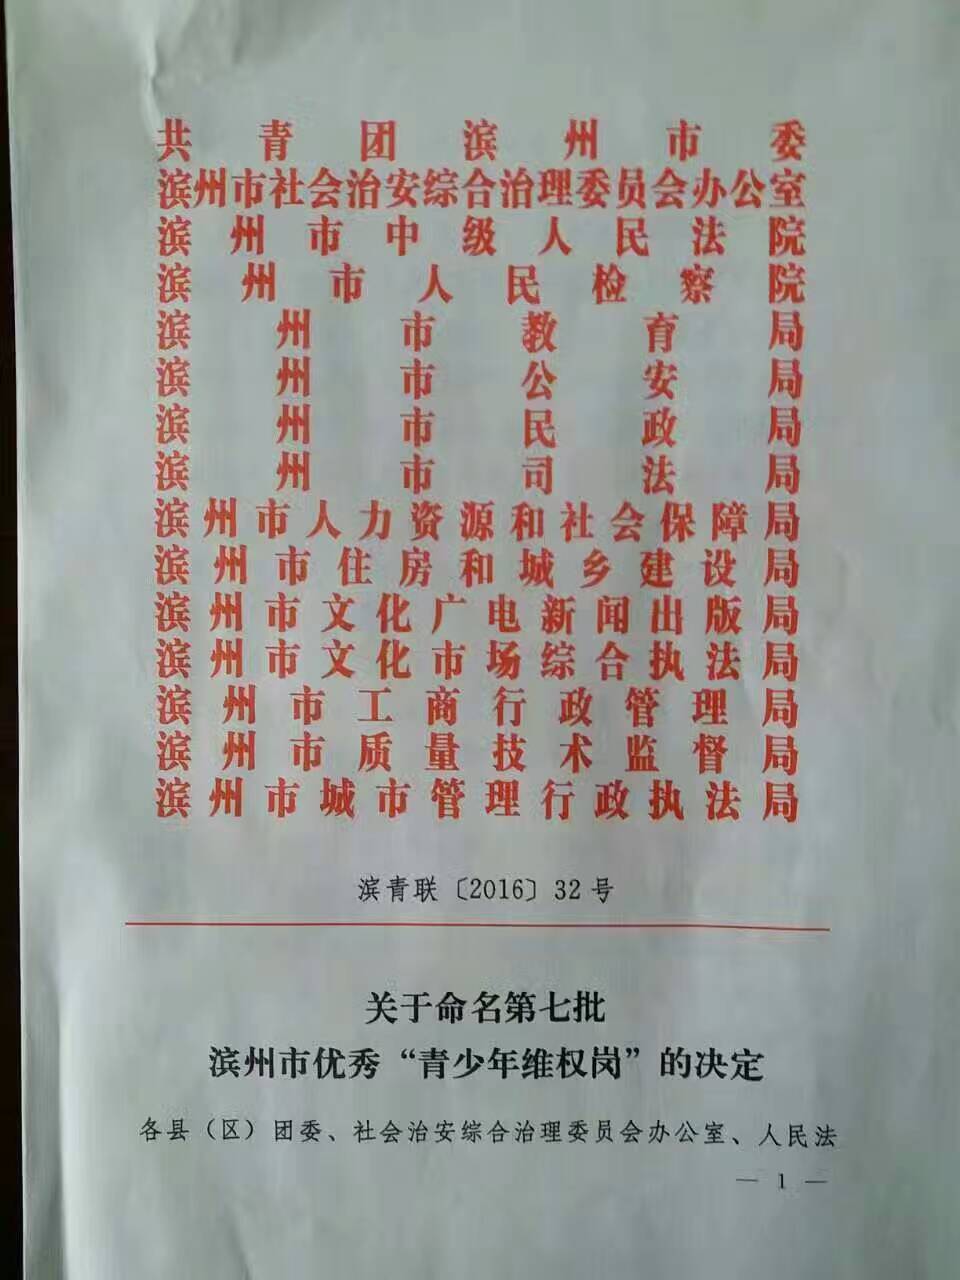 共青团滨州市委
滨州市社会治安综合治理委员会办公室
滨州市中级人民法院
滨州市人民检察院
滨州市教育局
滨州市公安局
滨州市民政局
滨州市司法局
滨州市人力资源和社会保障局
滨州市住房和城乡建设局
滨州市文化广电新闻出版局
滨州市文化市场综合执法局
滨州市工商行政管理局
滨州市质量技术监督局
滨州市城市管理行政执法局
滨青联〔2016〕32号
关于命名第七批
滨州市优秀“青少年维权岗”的决定
各县（区）团委、社会治安综合治理委员会办公室、人民法
— 1 —